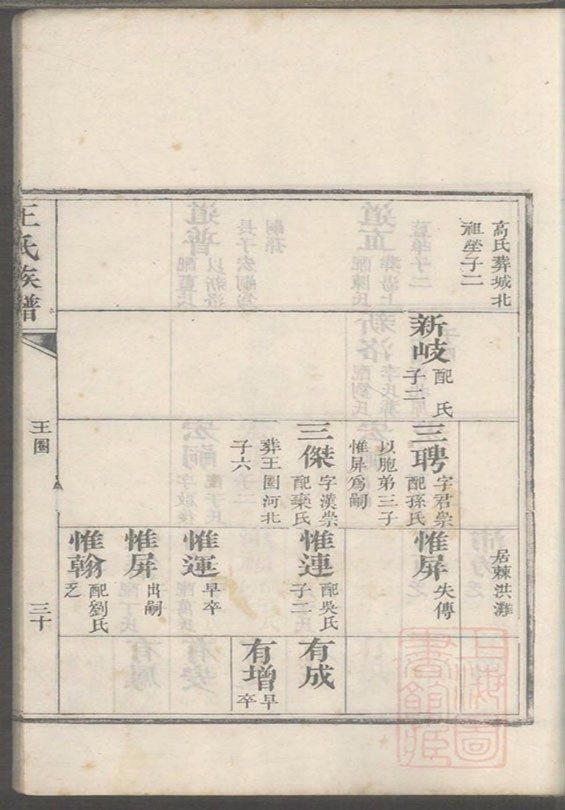 高氏葬城北
祖塋子二
新岐
配 氏
子二
三聘
字君崇
配孫氏
以胞弟三子
惟屏為嗣
三傑
字漢崇
配栾氏
葬王圈河北
子六
居棘洪灘
惟屏
失傳
惟連
配吳氏
子二
惟運
早卒
惟屏
出嗣
惟翰
配劉氏
乏
有成
有增
早
卒
王氏族譜
王圈
三十
上海圖
書館藏